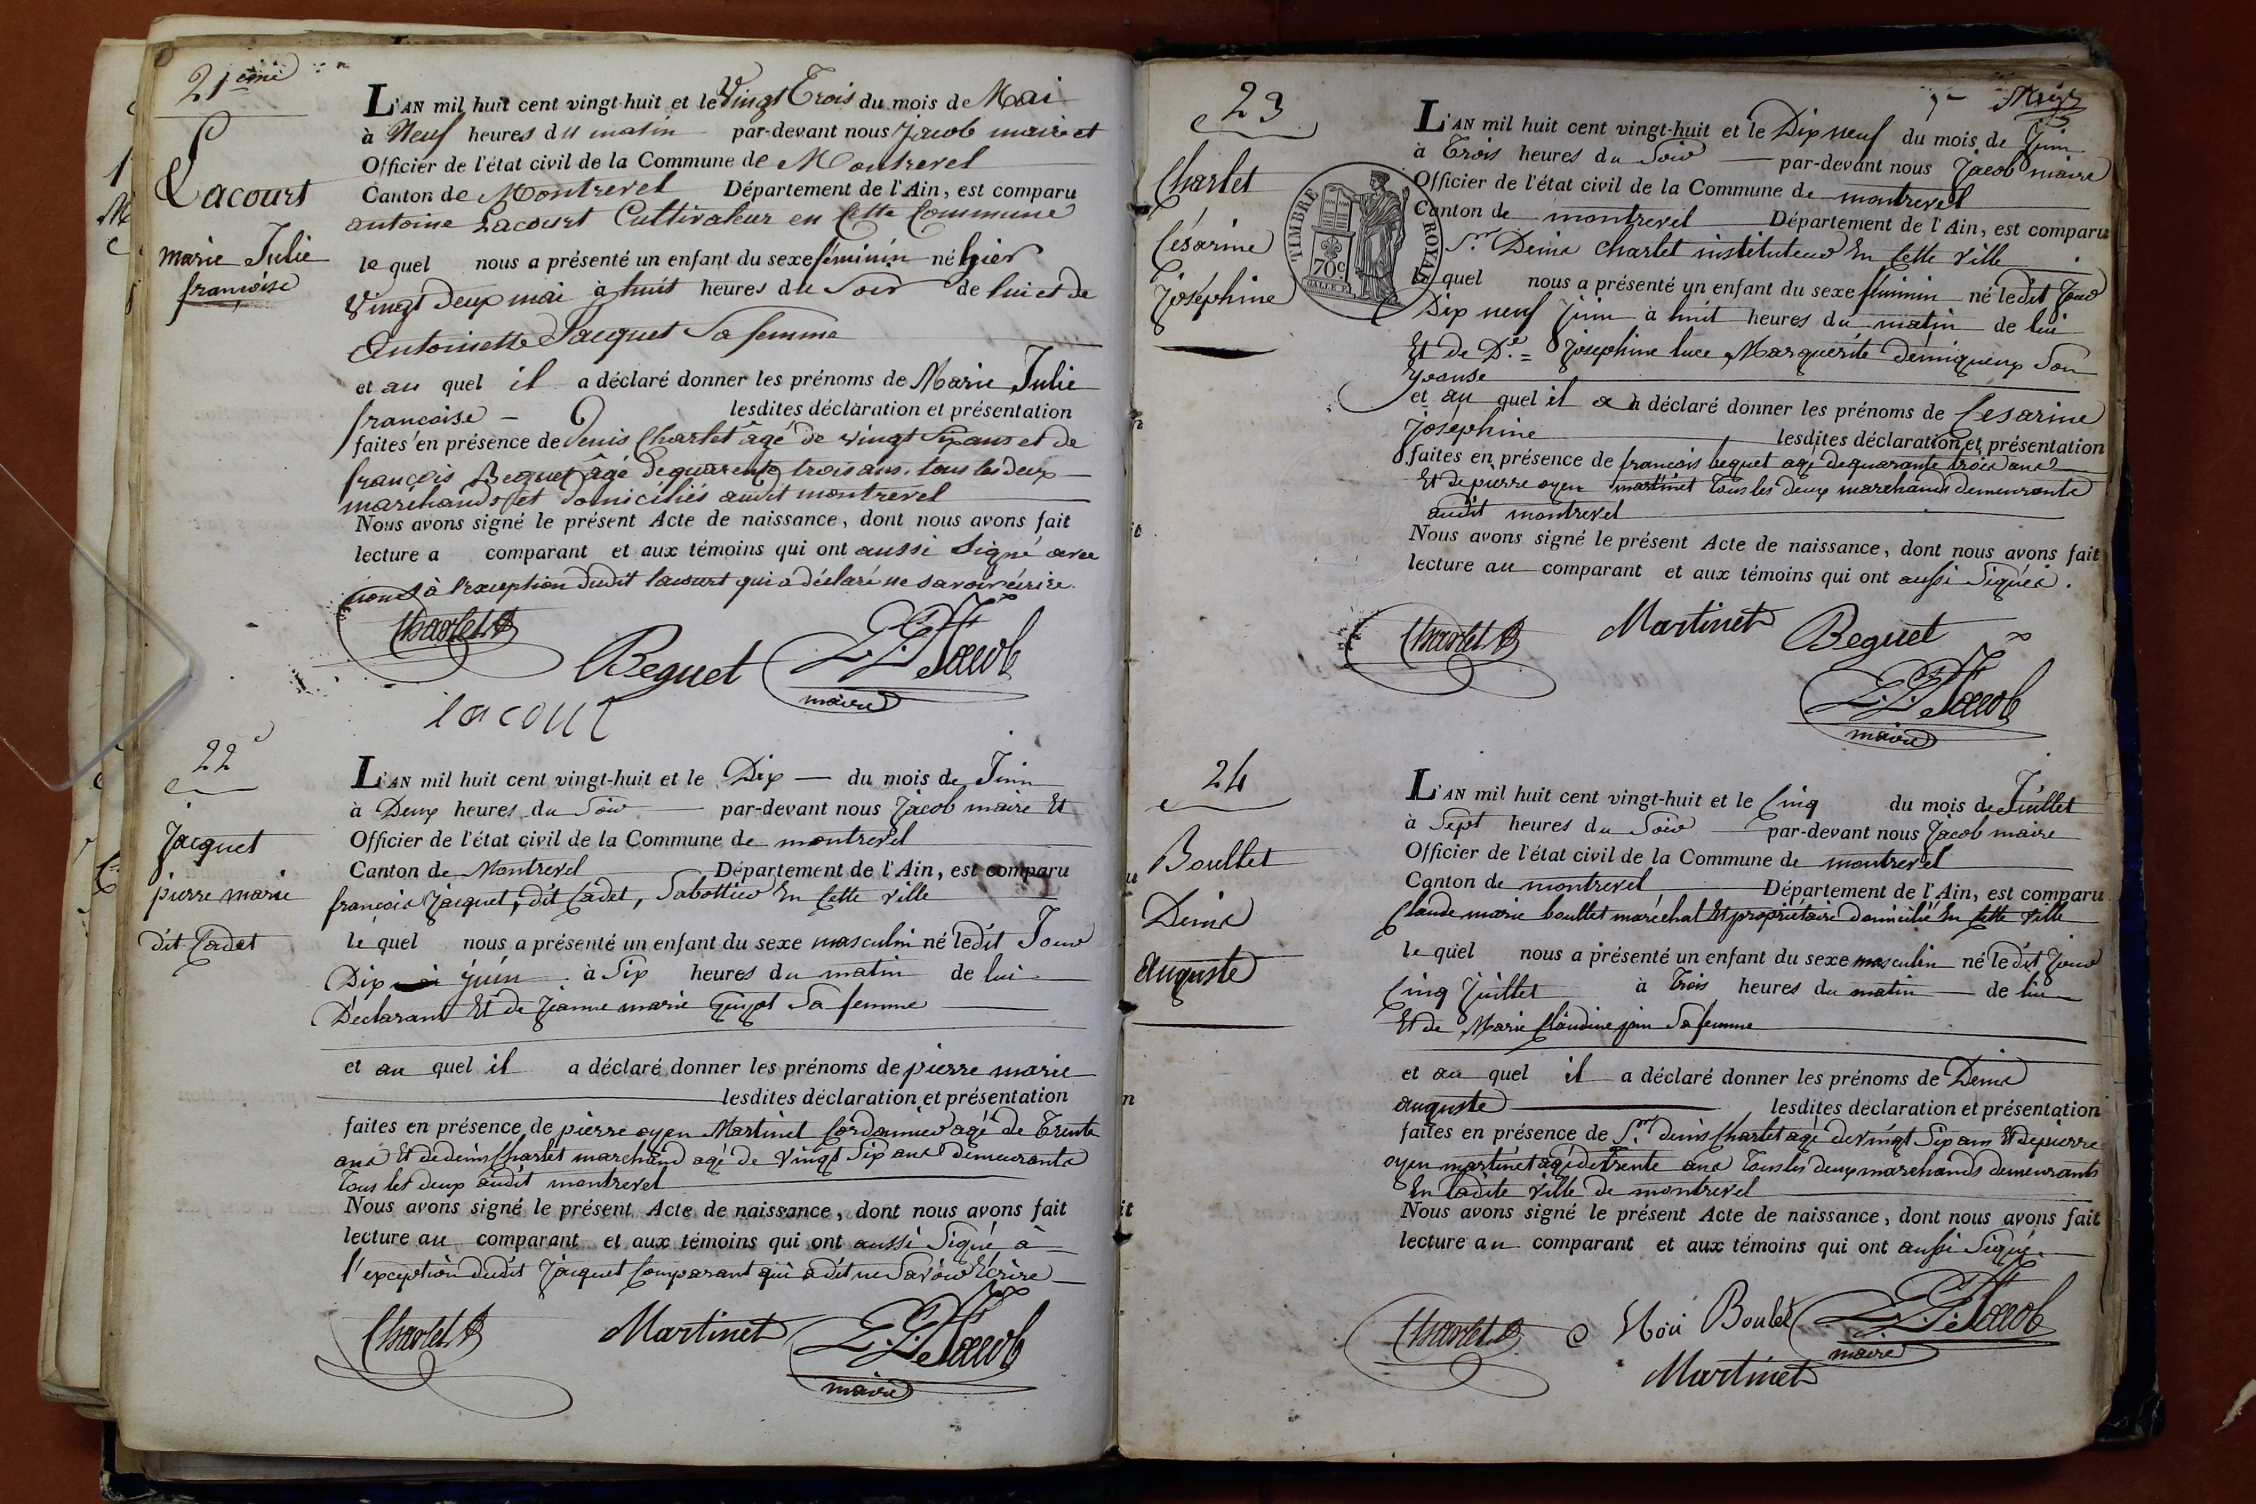 21eme
Lacourt
marie Julie
françoise
L'AN mil huit cent vingt-huit et le Vingt Trois du mois de Mai
à Neuf heures du matin par-devant nous Jacob maire et
Officier de l'état civil de la Commune de Montrevel
Canton de Montrevel Département de l'Ain, est comparu
antoine Lacourt Cultivateur en Cette Commune
le quel nous a présenté un enfant du sexe féminin né hier
Vingt deux mai à huit heures du Soir de lui et de
Antoinette Jacquet Sa femme
et au quel il a déclaré donner les prénoms de Marie Julie
francoise lesdites déclaration et présentation
faites en présence de Denis Charlet âgé de vingt Six ans et de
françois Bequet âgé de quarente trois ans. tous les deux
marchands et domiciliés audit montrevel
Nous avons signé le présent Acte de naissance, dont nous avons fait
lecture a comparant et aux témoins qui ont aussi Signé avec
nous à l'exception dudit lacourt qui a déclaré ne savoir écrire.
Charlet D
Beguet
Jacob
maire
lacour
22e
Jacquet
pierre marie
dit Cadet
L'AN mil huit cent vingt-huit et le Dix du mois de Juin
à Deux heures du Soir par-devant nous Jacob maire Et
Officier de l'état civil de la Commune de montrevel
Canton de Montrevel Département de l'Ain, est comparu
françois Jacquet, dit Cadet, Sabottier En Cette ville
le quel nous a présenté un enfant du sexe masculin né ledit Jour
Dix juin à Six heures du matin de lui
Déclarant Et de Jeanne marie Guyot Sa femme
et au quel il a déclaré donner les prénoms de pierre marie
lesdites déclaration et présentation
faites en présence de pierre oyen Martinet Cordonnier agé de Trente
ans Et de denis Charlet marchand agé de Vingt Six ans demeurants
Tous les deux audit montrevel
Nous avons signé le présent Acte de naissance, dont nous avons fait
lecture au comparant et aux témoins qui ont aussi Signé à
l'exception dudit Jacquet Comparant qui a dit ne Savoir Ecrire
Charlet D
Martinet
Jacob
maire
23
Charlet
Césarine
Joséphine
TIMBRE ROYAL
70c
L'AN mil huit cent vingt-huit et le Dix neuf du mois de Juin
à Trois heures du Soir par-devant nous Jacob maire
Officier de l'état civil de la Commune de montrevel
Canton de montrevel Département de l'Ain, est comparu
Sr. Denis Charlet instituteur En Cette ville
le quel nous a présenté un enfant du sexe féminin né ledit Jour
Dix neuf Juin à huit heures du matin de lui
Et de De. = Josephine luce Marguerite Déniqueux Son
Epouse
et au quel il a déclaré donner les prénoms de Césarine
Joséphine lesdites déclaration et présentation
faites en présence de françois bequet agé de quarante trois ans
Et de pierre oyen martinet Tous les deux marchands demeurants
audit montrevel
Nous avons signé le présent Acte de naissance, dont nous avons fait
lecture au comparant et aux témoins qui ont aussi Signés.
Charlet D
Martinet
Beguet
Jacob
maire
24
Boullet
Denis
auguste
L'AN mil huit cent vingt-huit et le Cinq du mois de Juillet
à Sept heures du Soir par-devant nous Jacob maire
Officier de l'état civil de la Commune de montrevel
Canton de montrevel Département de l'Ain, est comparu
Claude marie boullet maréchal Et propriétaire domicilié En Cette ville
le quel nous a présenté un enfant du sexe masculin né ledit Jour
Cinq Juillet à Trois heures du matin de lui
Et de Marie Claudine Sa femme
et au quel il a déclaré donner les prénoms de Denis
auguste lesdites déclaration et présentation
faites en présence de Sr. denis Charlet agé de Vingt Six ans Et de pierre
oyen martinet agé de Trente ans Tous les deux marchands demeurants
En ladite ville de montrevel
Nous avons signé le présent Acte de naissance, dont nous avons fait
lecture au comparant et aux témoins qui ont aussi Signé.
Charlet D
Boulet
Jacob
maire
Martinet